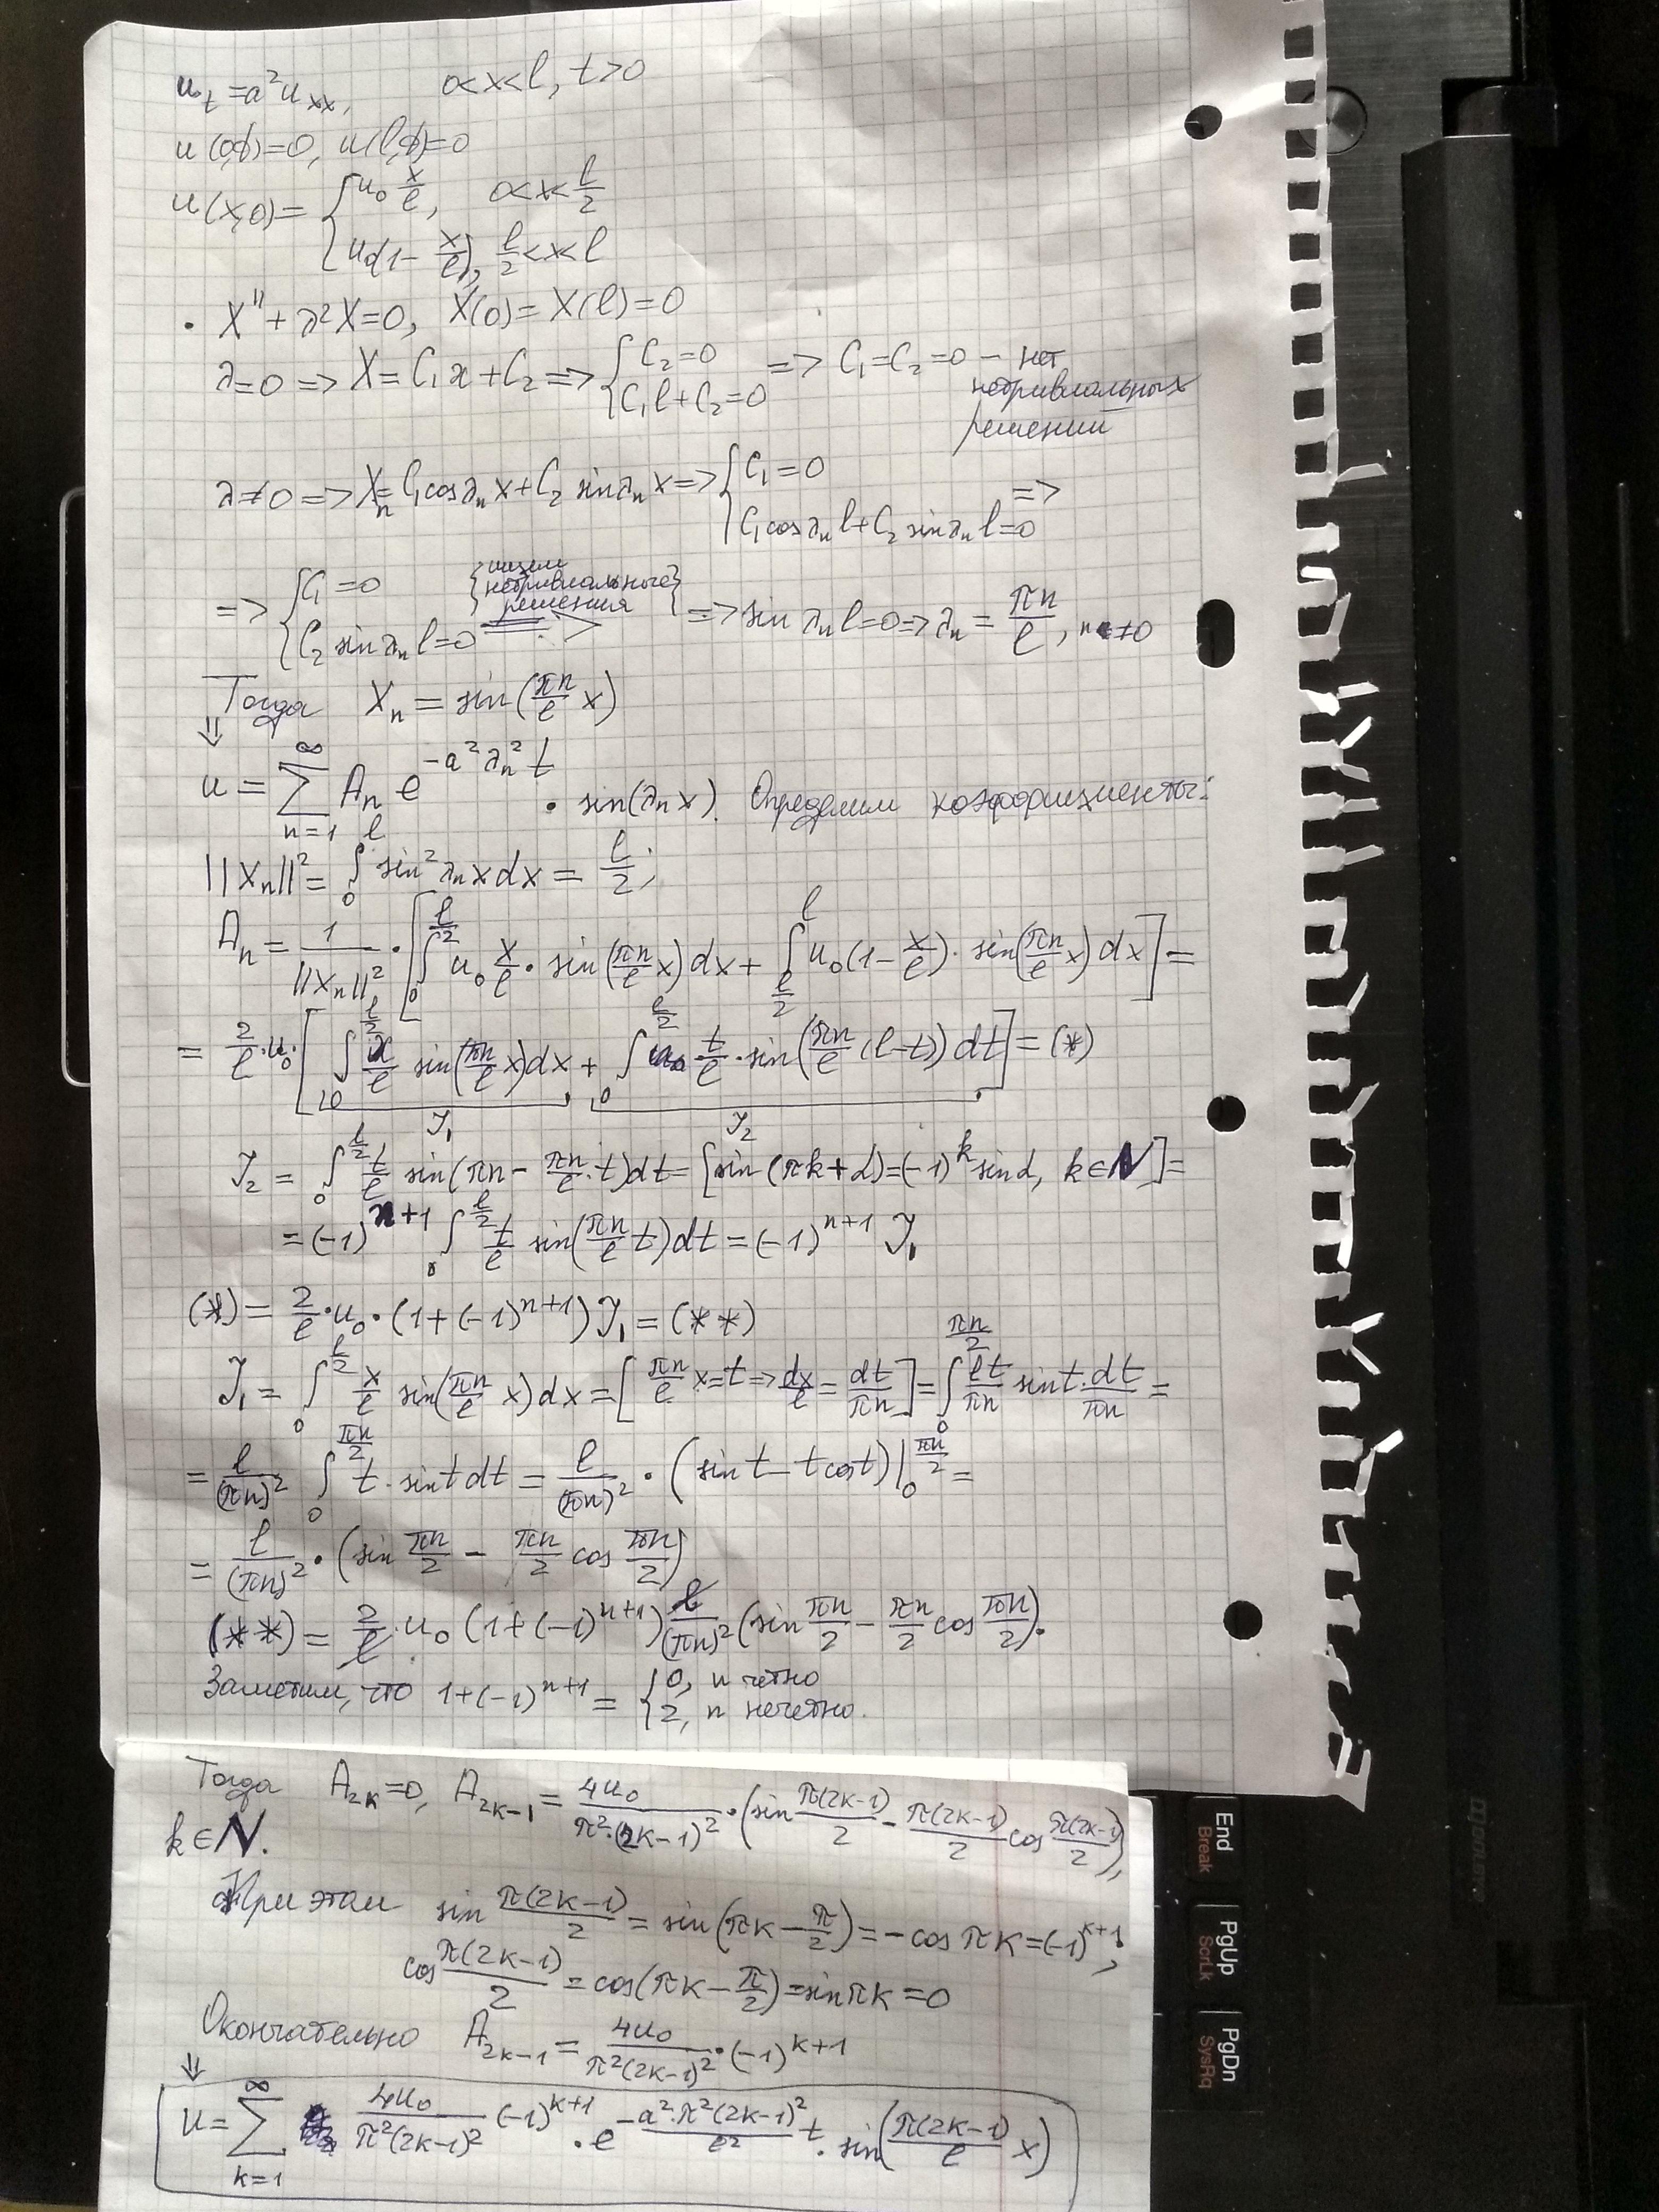 u_t = a²u_xx,   0<x<l, t>0
u(0,t)=0, u(l,t)=0
u(x,0) = { u₀ x/l, 0<x<l/2
u₀(1 - x/l), l/2<x<l
• X'' + λ²X=0, X(0)=X(l)=0
λ=0 => X=C₁x+C₂ => { C₂=0; C₁l+C₂=0 => C₁=C₂=0 – нет
нетривиальных
решений
λ≠0 => X_n = C₁cosλ_n x + C₂ sinλ_n x => { C₁=0; C₁cosλ_n l + C₂ sinλ_n l = 0 =>
=> { C₁=0; C₂ sinλ_n l=0 {ищем нетривиальные решения} => sin λ_n l=0 => λ_n = πn/l, n≠0
Тогда X_n = sin(πn/l x)
⇓
u = ∑_{n=1}^{∞} A_n e^{-a²λ_n² t} · sin(λ_n x). Определим коэффициенты:
||X_n||² = ∫_0^l sin²λ_n x dx = l/2;
A_n = 1/||X_n||² · [∫_0^{l/2} u₀ x/l · sin(πn/l x)dx + ∫_{l/2}^l u₀(1 - x/l) · sin(πn/l x)dx] =
= 2/l · u₀ · [∫_0^{l/2} x/l sin(πn/l x)dx + ∫_0^{l/2} t/l · sin(πn/l (l-t))dt] = (*)
J₁ J₂
J₂ = ∫_0^{l/2} t/l sin(πn - πn/l · t)dt = [sin(πk+α)=(-1)^k sinα, k∈N] =
= (-1)^{n+1} ∫_0^{l/2} t/l sin(πn/l t)dt = (-1)^{n+1} J₁
(*) = 2/l · u₀ · (1+(-1)^{n+1}) J₁ = (**)
J₁ = ∫_0^{l/2} x/l sin(πn/l x)dx = [πn/l x=t => dx/l = dt/πn] = ∫_0^{πn/2} lt/πn sint · dt/πn =
= l/(πn)² ∫_0^{πn/2} t · sint dt = l/(πn)² · (sint - tcost)|_0^{πn/2} =
= l/(πn)² · (sin πn/2 - πn/2 cos πn/2)
(**) = 2/l · u₀ (1+(-1)^{n+1}) l/(πn)² (sin πn/2 - πn/2 cos πn/2).
Заметим, что 1+(-1)^{n+1} = { 0, n четно
2, n нечетно.
Тогда A_{2k}=0, A_{2k-1} = 4u₀/π²·(2k-1)² · (sin π(2k-1)/2 - π(2k-1)/2 cos π(2k-1)/2),
k∈N.
При этом sin π(2k-1)/2 = sin(πk - π/2) = -cos πk = (-1)^{k+1};
cos π(2k-1)/2 = cos(πk - π/2) = sinπk = 0
Окончательно A_{2k-1} = 4u₀/π²(2k-1)² · (-1)^{k+1}
⇓
u = ∑_{k=1}^{∞} 4u₀/π²(2k-1)² (-1)^{k+1} · e^{-a²·π²(2k-1)²/l² t} · sin(π(2k-1)/l x)
End
Break
PgUp
ScrLk
PgDn
SysRq